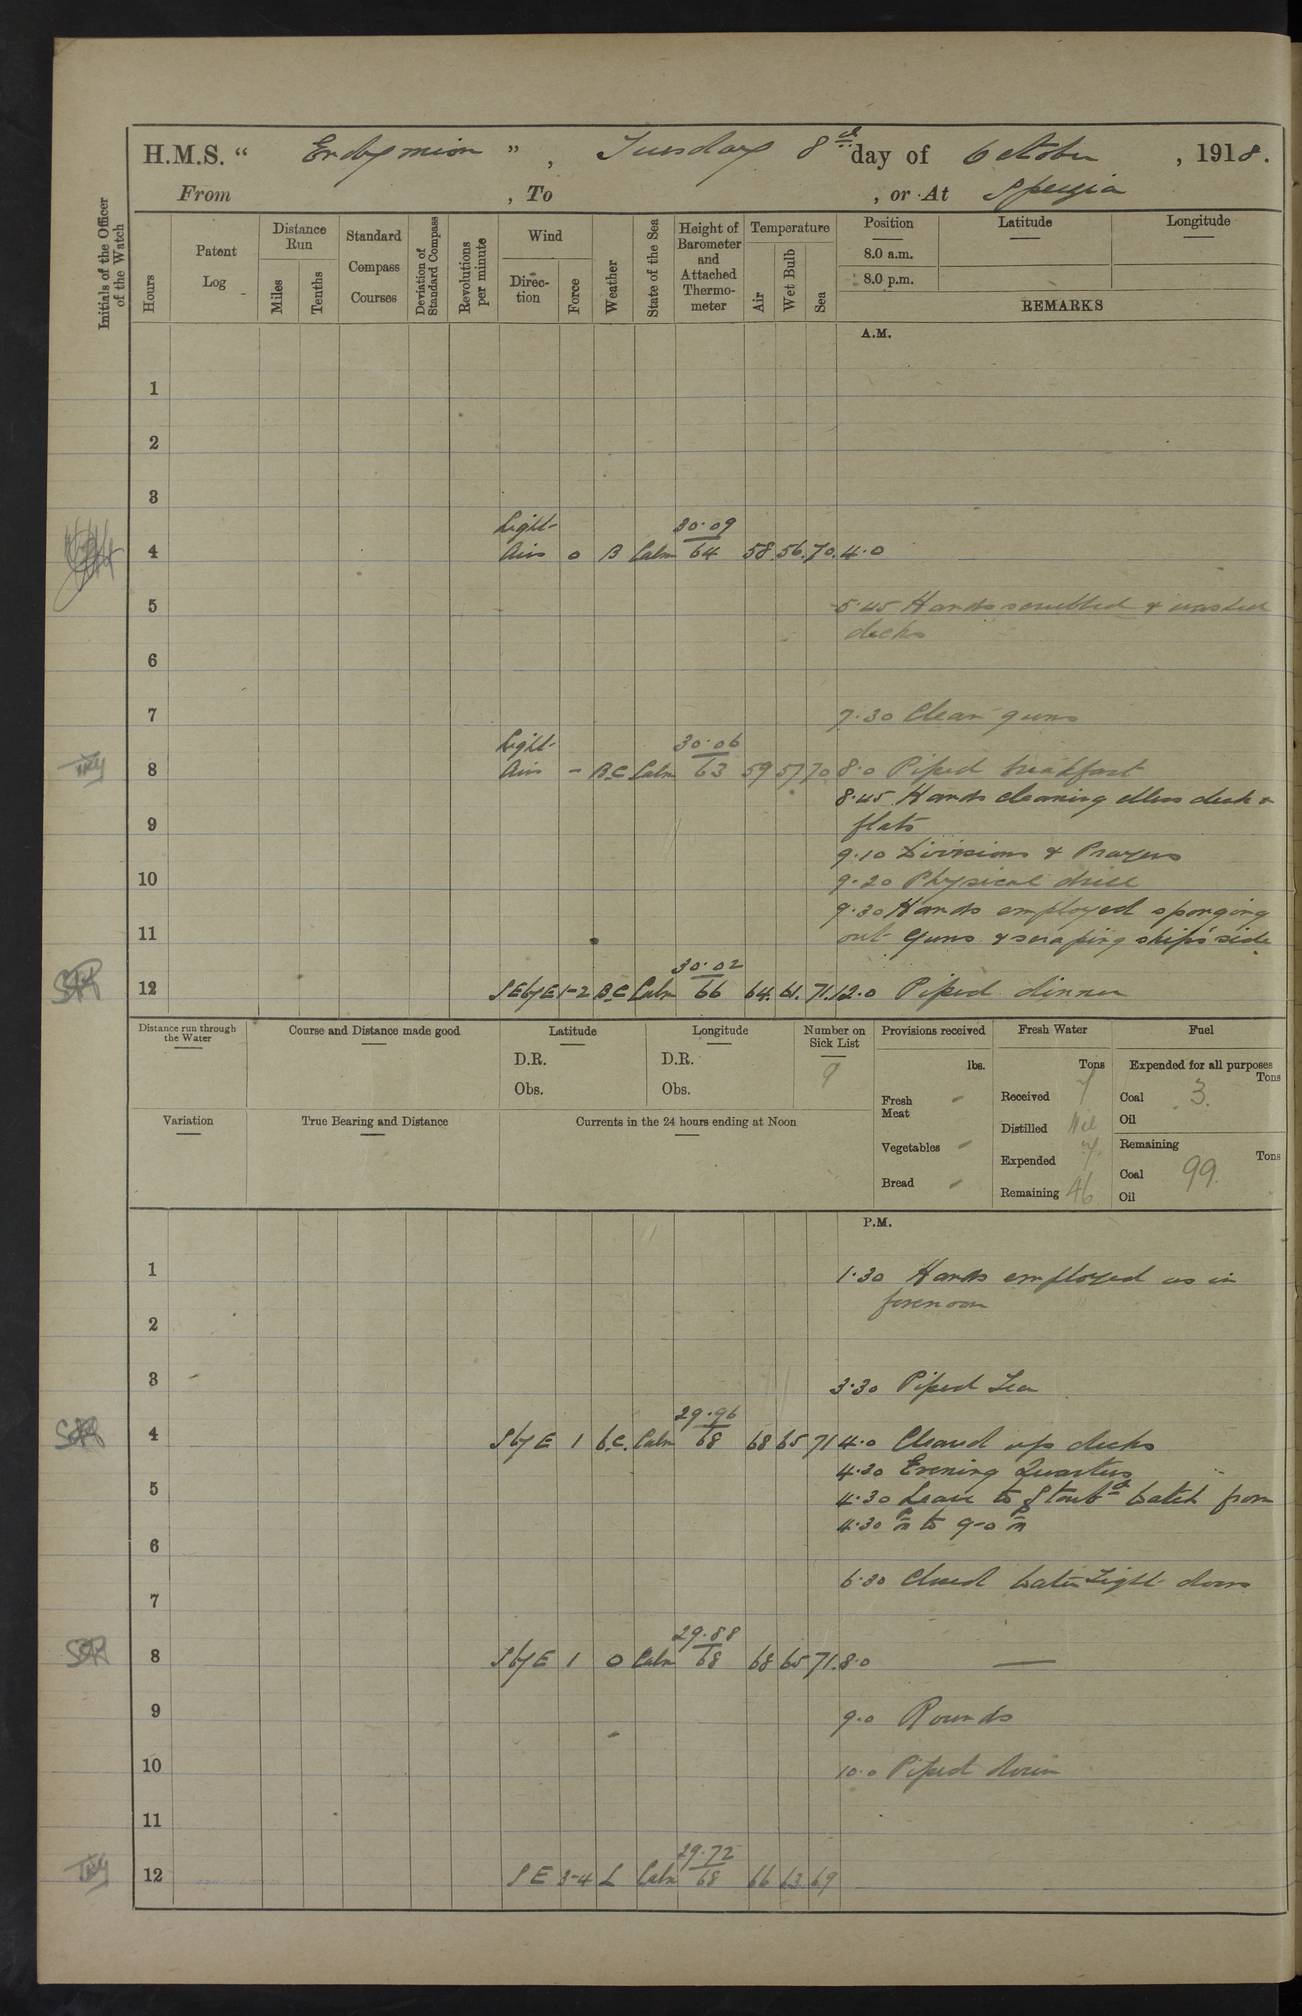 H.M.S. " Endymion ", Tuesday 8th day of October, 1918.
From , To , or At Spezia
Initials of the Officer of the Watch
Hours
Patent Log
Distance Run
Miles
Tenths
Standard Compass Courses
Deviation of Standard Compass
Revolutions per minute
Wind
Direction
Force
Weather
State of the Sea
Height of Barometer and Attached Thermometer
Temperature
Air
Wet Bulb
Sea
Position
Latitude
Longitude
8.0 a.m.
8.0 p.m.
REMARKS
A.M.
1
2
3
Light 30.09
4 Airs 0 B Calm 64 58 56 70 4.0
5 5.45 Hands scrubbed & washed
decks
6
7 7.30 Clean guns
Light 30.06
8 Airs - BC Calm 63 59 57 70 8.0 Piped breakfast
8.45 Hands cleaning Mess deck &
9 flats
9.10 Divisions & Prayers
10 9.20 Physical drill
9.30 Hands employed sponging
11 out guns & scraping ships side
30.02
12 SEbyE 1-2 BC Calm 66 64 61 71 12.0 Piped dinner
Distance run through the Water
Course and Distance made good
Latitude
D.R.
Obs.
Longitude
D.R.
Obs.
Number on Sick List
9
Provisions received
lbs.
Fresh Meat "
Vegetables "
Bread "
Fresh Water
Tons
Received 7
Distilled Nil
Expended 7
Remaining 46
Fuel
Expended for all purposes
Tons
Coal 3
Oil
Remaining
Tons
Coal 99
Oil
Variation
True Bearing and Distance
Currents in the 24 hours ending at Noon
P.M.
1 1.30 Hands employed as in
forenoon
2
3 3.30 Piped Tea
29.96
4 SbyE 1 b.c. Calm 68 68 65 71 4.0 Cleared up decks
4.30 Evening Quarters
5 4.30 Leave to Starbd Watch from
4.30 pm to 9-0 pm
6
6.30 Closed Water Tight doors
7
29.88
8 SbyE 1 O Calm 68 68 65 71 8.0 —
9 9.0 Rounds
10 10.0 Piped down
11
29.72
12 SE 3-4 L Calm 68 66 63 69